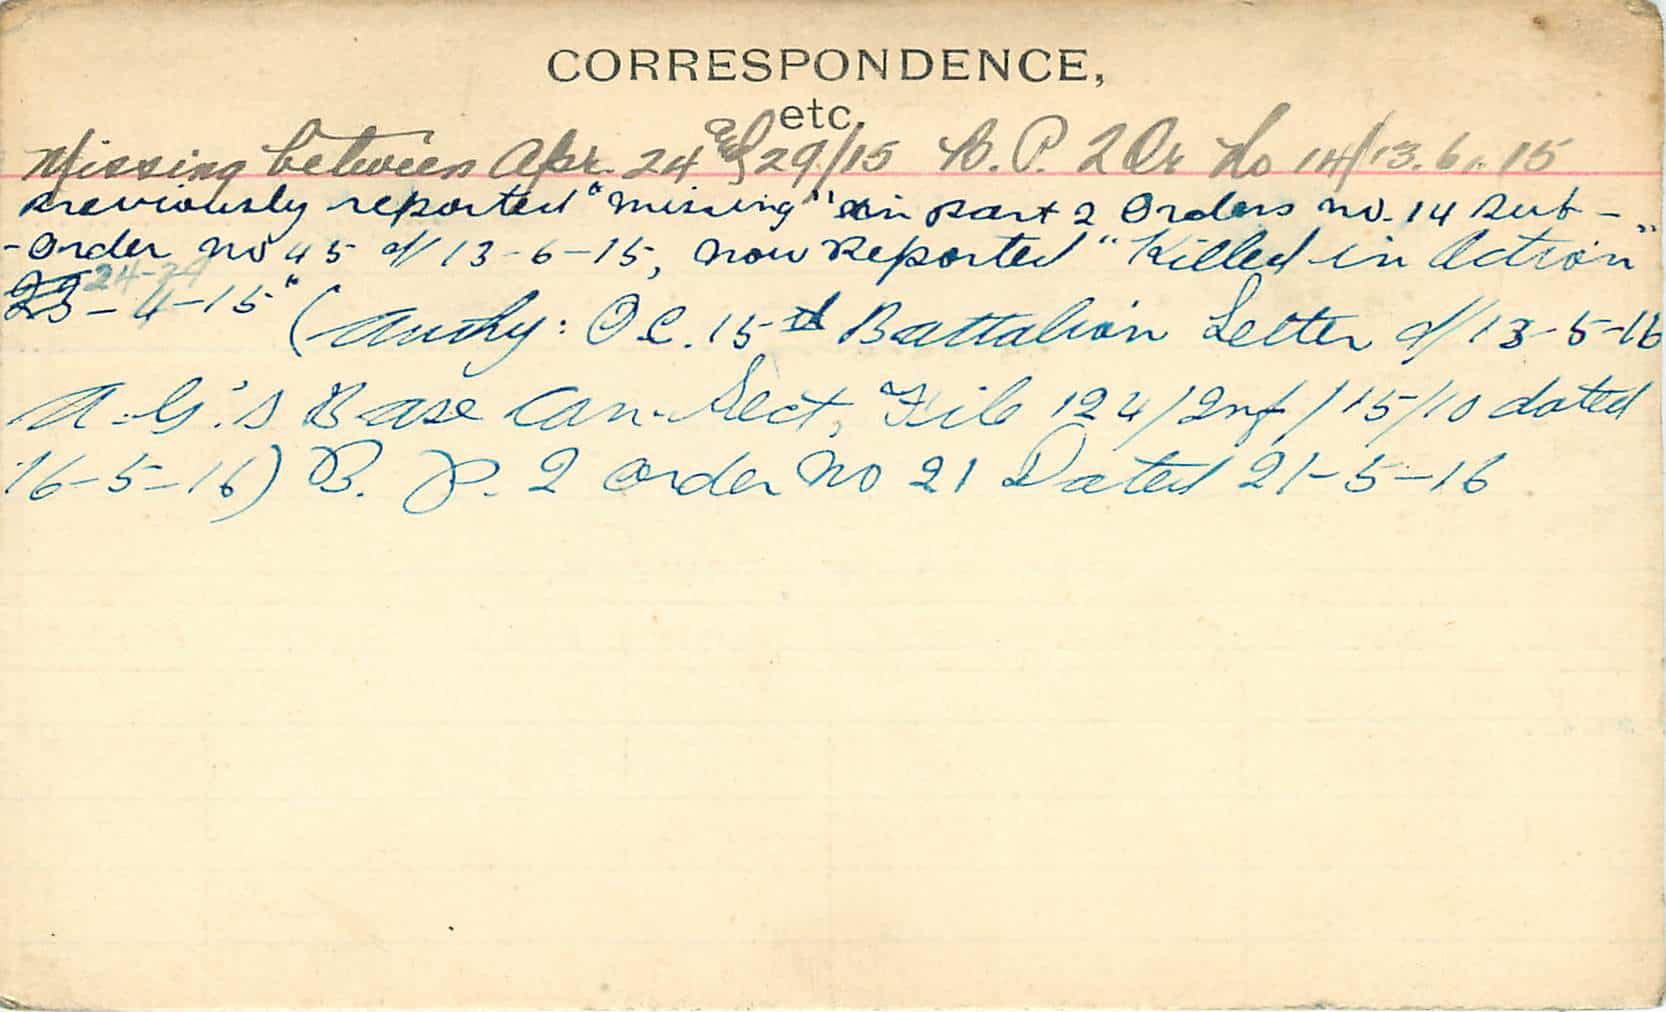 CORRESPONDENCE,
etc.
Missing between Apr. 24 & 29/15 B. P. 2 Or No 14/13.6.15
Previously reported "missing" in Part 2 Orders no. 14 Sub-
-Order no 45 d/ 13-6-15, now Reported "Killed in Action"
23 24-29 -4-15" (Authy: O.C. 15th Battalion Letter d/ 13-5-16
A.G.'s Base Can. Sect, File 124/Inf/15/10 dated
16-5-16) B. P. 2 Order No 21 Dated 21-5-16